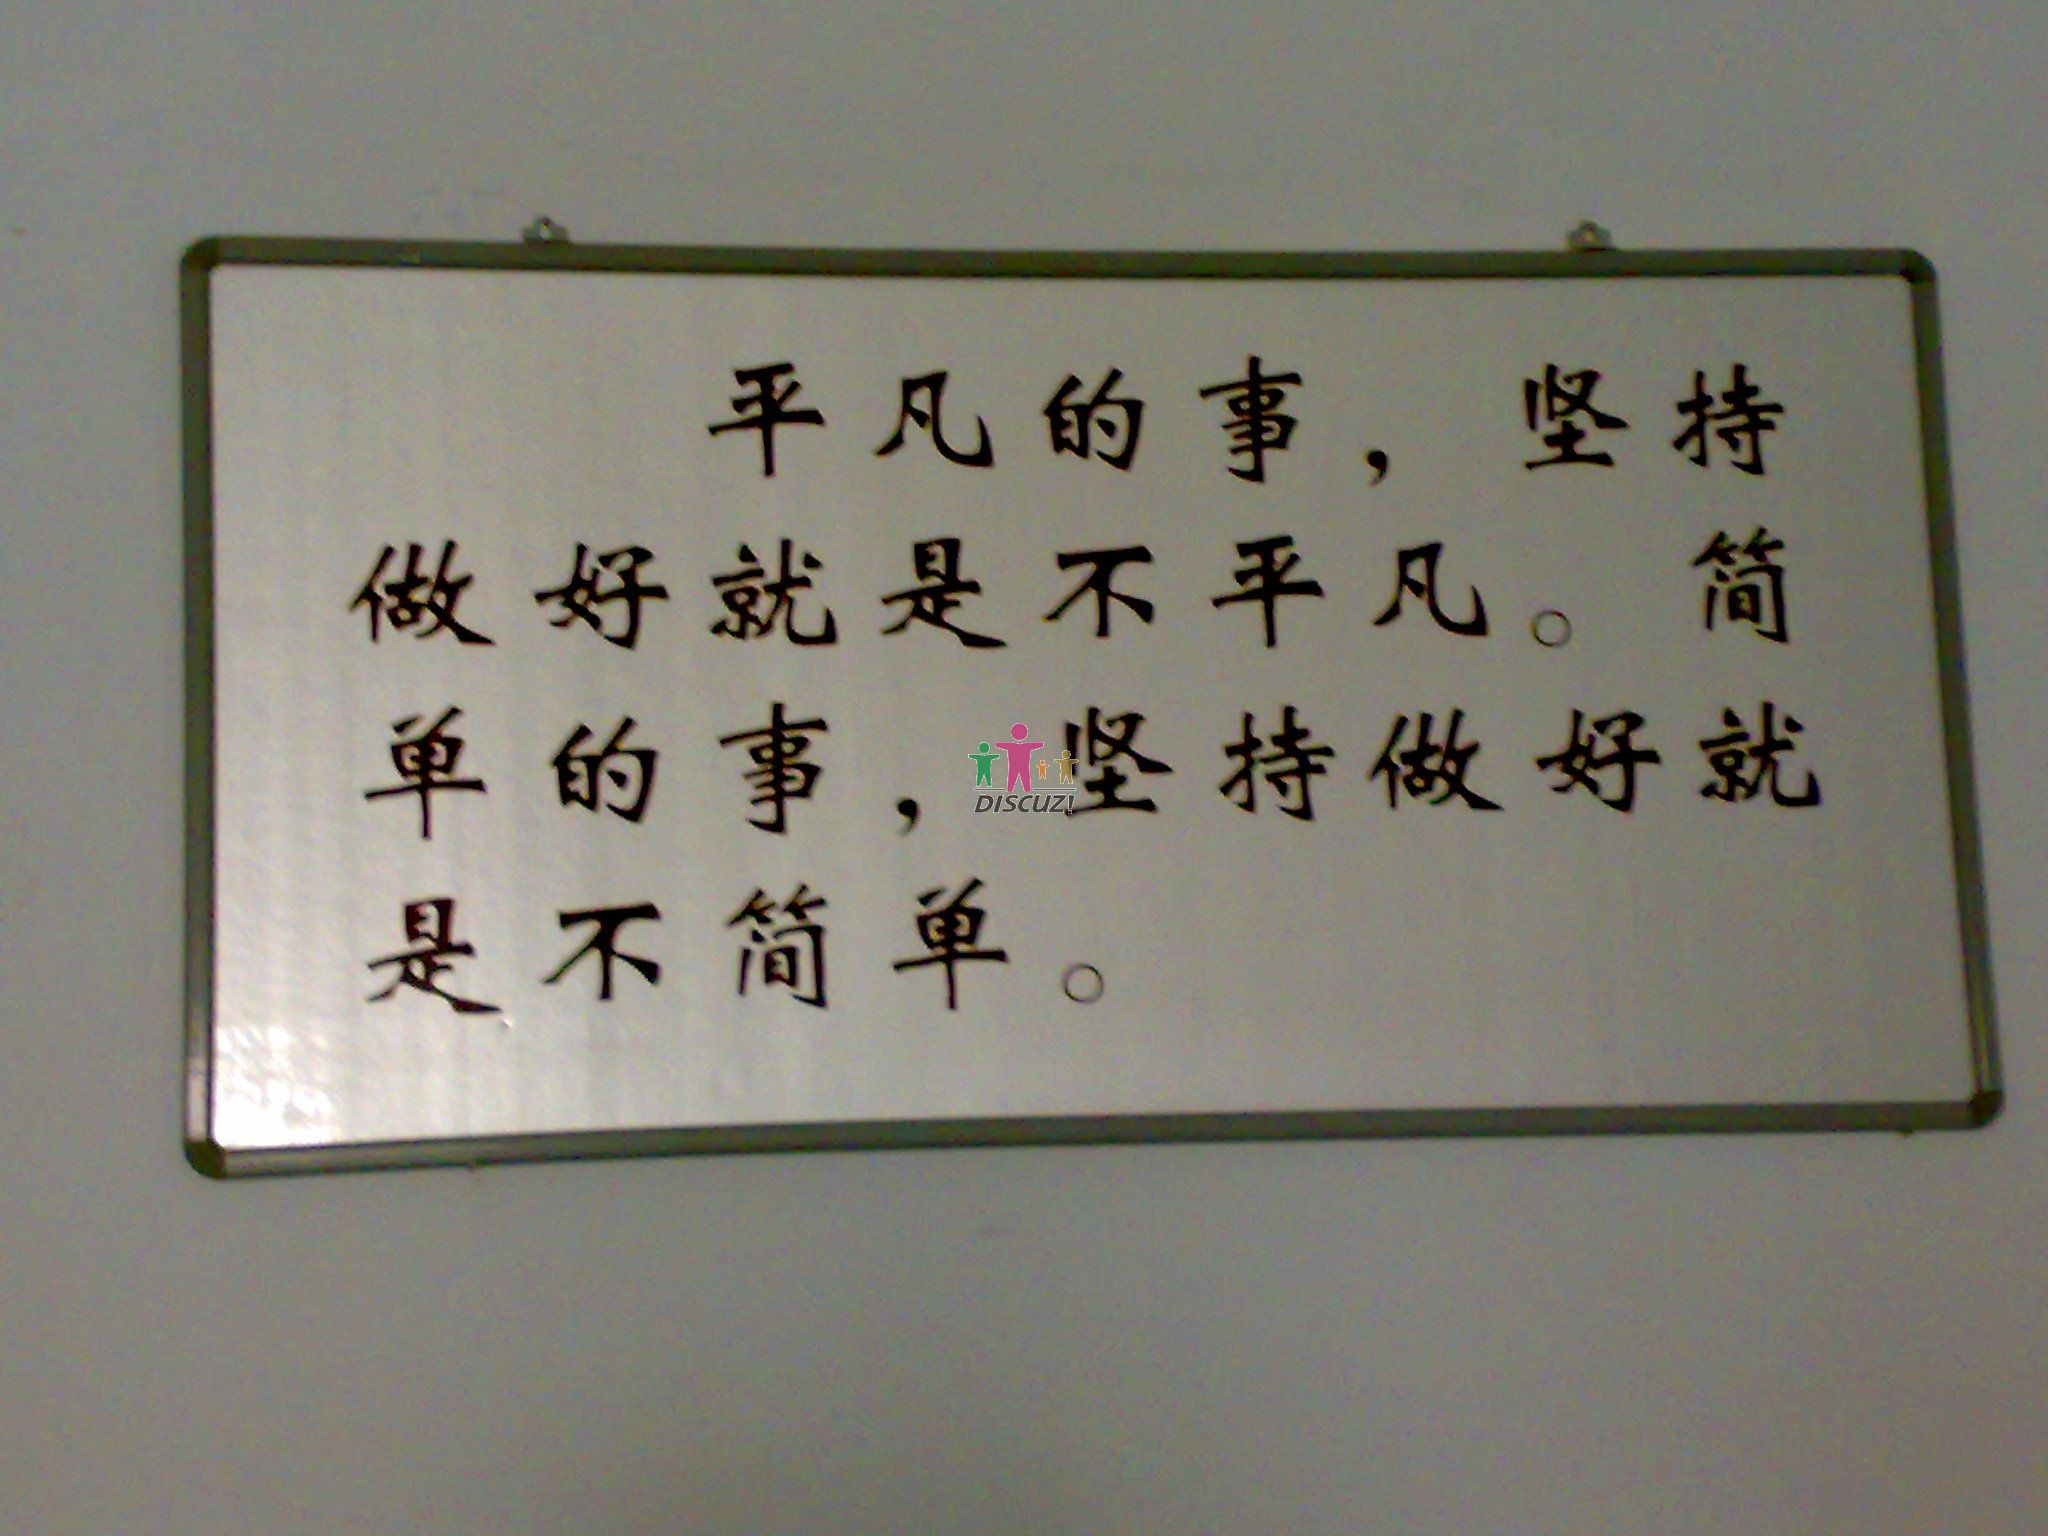 平凡的事，坚持
做好就是不平凡。简
单的事，坚持做好就
是不简单。
DISCUZ!